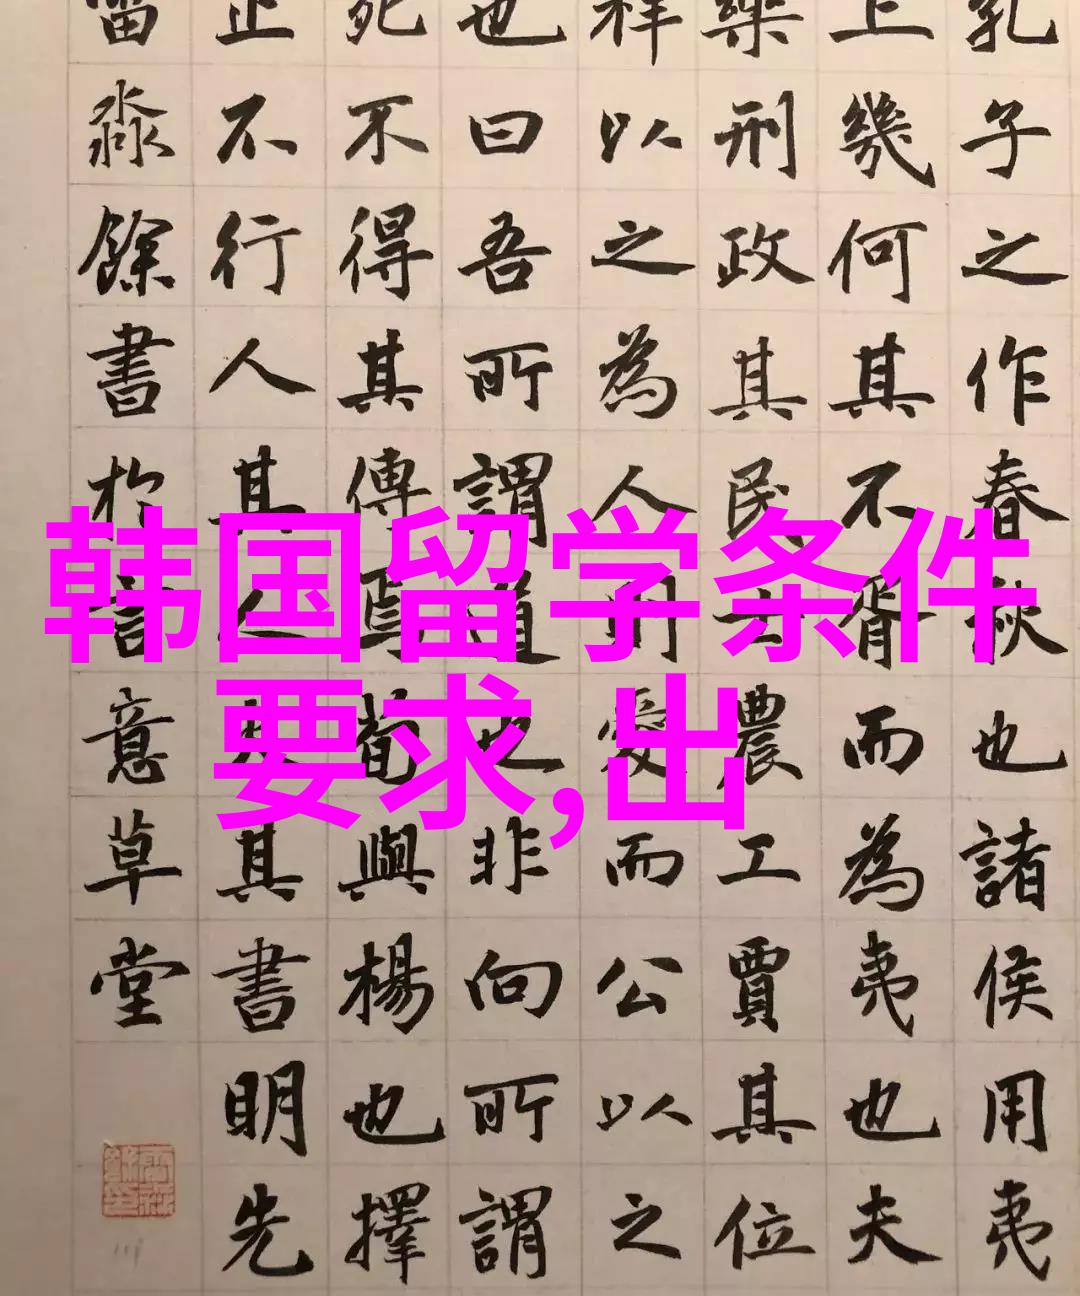 韩国留学条件
要求,出
孔子之作春秋也諸侯用夷
上幾何其不胥而為夷也夫
樂刑政其民士農工賈其位
祥以之為人則愛而公以之
也曰吾所謂道也非向所謂
死不得其傳焉荀與楊也擇
止不行人其人火其書明先
留淼餘書於言意草堂